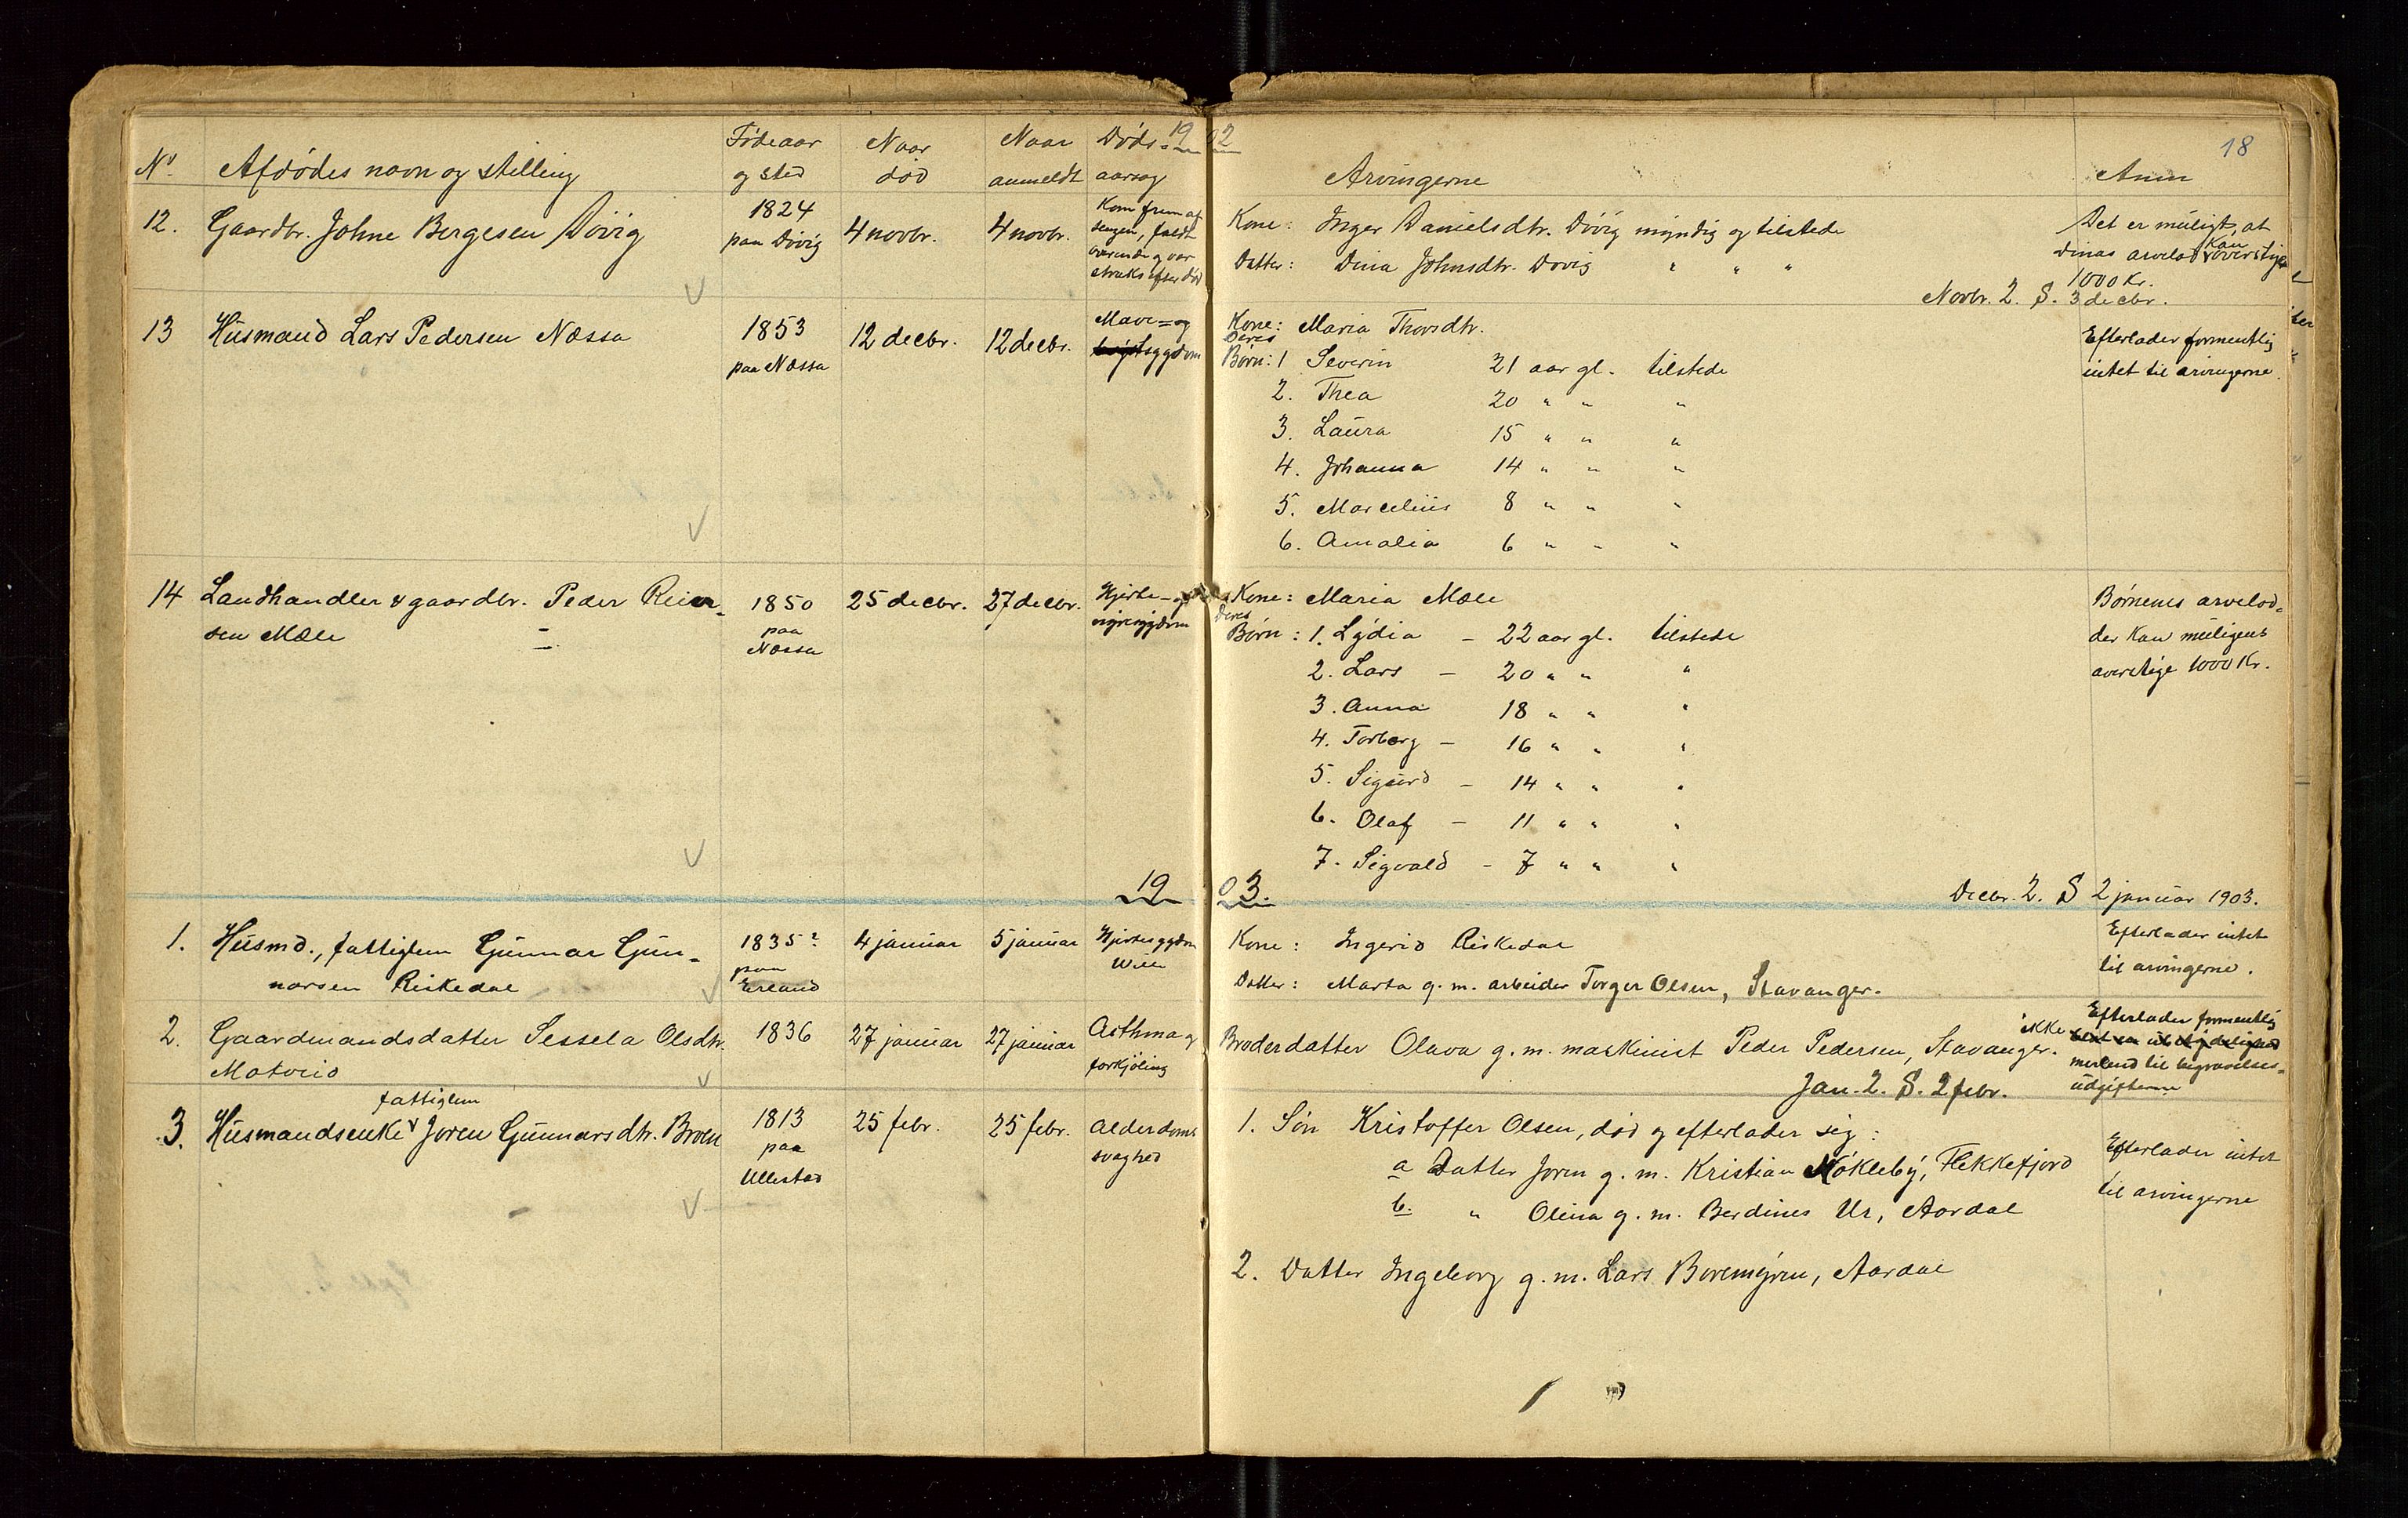 19 02
18
No. Afdødes navn og stilling Fødeaar og sted Naar død Naar anmeldt Døds- aarsag Arvingerne Anm
12. Gaardbr. Johne Bergesen Døvig
1824
paa Døvig
4 novbr. 4 novbr.
Kom frem af
sengen, faldt
overende og var
straks efter død
Kone: Inger Danielsdtr. Døvig myndig og tilstede
Datter: Dina Johnsdtr. Døvig " " "
Det er muligt, at
Dinas arvelod kan overstige
1000 Kr.
Novbr. 2. S. 3 decbr.
13 Husmand Lars Pedersen Næssa
1853
paa Næssa
12 decbr. 12 decbr.
Mave- og
sygdom
Kone: Maria Thorsdtr.
Deres
Børn: 1 Severin 21 aar gl. tilstede
2. Thea 20 " " "
3. Laura 15 " " "
4. Johanna 14 " " "
5. Marcelius 8 " " "
6. Amalia 6 " " "
Efterlader formentlig
intet til arvingerne.
14 Landhandler & gaardbr. Peder Reier-
sen Mæle
1850
paa
Næssa
25 decbr. 27 decbr.
Hjerte- og
nyresygdom
Kone: Maria Mæle
Deres
Børn: 1. Lydia - 22 aar gl. tilstede
2. Lars - 20 " " "
3. Anna 18 " " "
4. Torborg - 16 " " "
5. Sigurd - 14 " " "
6. Olaf - 11 " " "
7. Sigvald - 7 " " "
Børnenes arvelod-
der kan muligens
overstige 1000 Kr.
Decbr. 2. S 2 januar 1903.
19 03.
1. Husmd., fattiglem Gunnar Gun-
narsen Riskedal
1835?
paa
Eiland
4 januar 5 januar
Hjertesygdom
Kone: Ingerid Riskedal
Datter: Marta g. m. arbeider Torger Olsen, Stavanger.
Efterlader intet
til arvingerne.
2. Gaardmandsdatter Sessela Olsdtr.
Motveid
1836
27 januar 27 januar
Asthma og
forkjøling
Broderdatter Olava g. m. maskinist Peder Pedersen, Stavanger.
Efterlader formentlig
ikke
mer end til begravelses-
udgifterne
Jan. 2. S. 2 febr.
fattiglem
3. Husmandsenke & Joren Gunnarsdtr. Broen
1813
paa
Ullestad
25 febr. 25 febr.
Alderdoms
svaghed
1. Søn Kristoffer Olsen, død og efterlader sig:
a Datter Joren g. m. Kristian Nökleby, Flekkefjord
b. " Olina g. m. Berdines Ur, Aardal
2. Datter Ingeborg g. m. Lars Boremyren, Aardal
Efterlader intet
til arvingerne